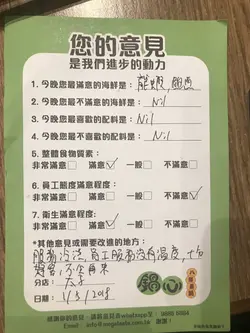 您的意見
是我們進步的動力
1. 今晚您最滿意的海鮮是： 龍蝦, 鮑魚
2. 今晚您最不滿意的海鮮是： Nil
3. 今晚您最喜歡的配料是： Nil
4. 今晚您最不喜歡的配料是： Nil
5. 整體食物質素：
非常滿意 滿意 ✓ 一般 不滿意
6. 員工態度滿意程度：
非常滿意 滿意 一般 不滿意 ✓
7. 衛生滿意程度：
非常滿意 滿意 ✓ 一般 不滿意
*其他意見或需要改進的地方：
服務冷淡, 員工服務沒有溫度, 十分
分店：
日期： 1/3/2018
鍋心